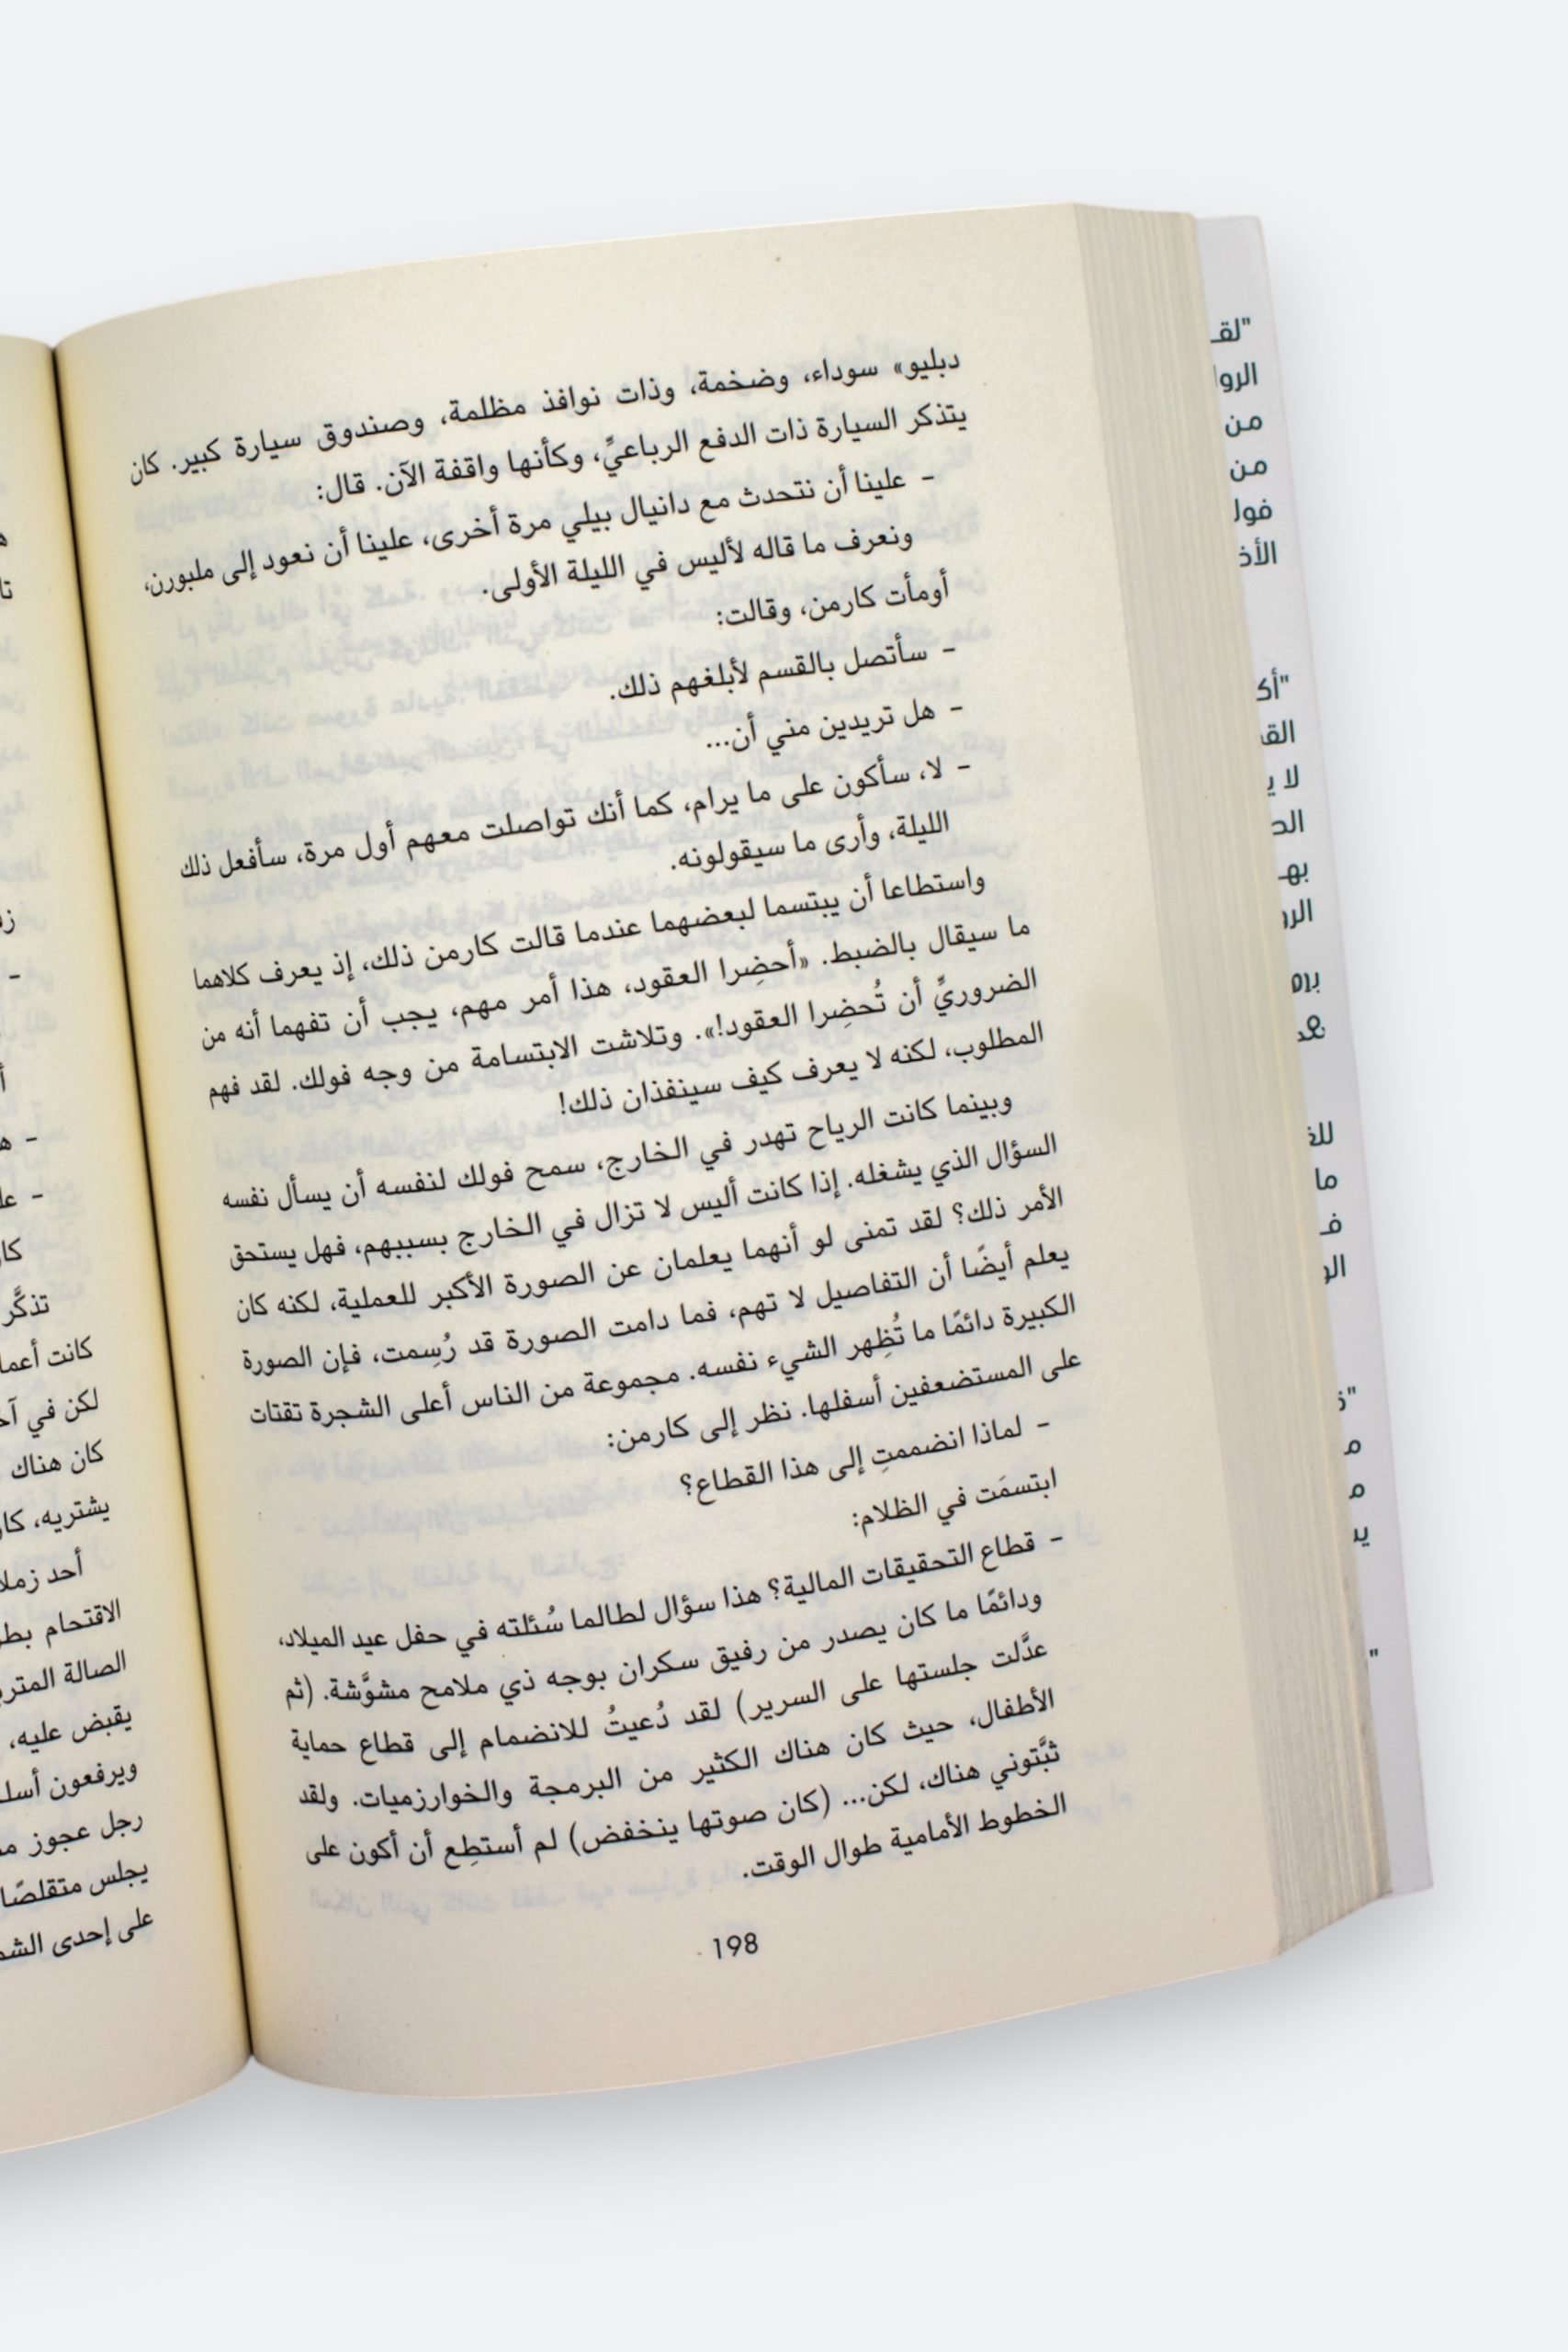 دبليو» سوداء، وضخمة، وذات نوافذ مظلمة، وصندوق سيارة كبير. كان
يتذكر السيارة ذات الدفع الرباعيِّ، وكأنها واقفة الآن. قال:
- علينا أن نتحدث مع دانيال بيلي مرة أخرى، علينا أن نعود إلى ملبورن،
ونعرف ما قاله لأليس في الليلة الأولى.
أومأت كارمن، وقالت:
- سأتصل بالقسم لأبلغهم ذلك.
- هل تريدين مني أن...
- لا، سأكون على ما يرام، كما أنك تواصلت معهم أول مرة، سأفعل ذلك
الليلة، وأرى ما سيقولونه.
واستطاعا أن يبتسما لبعضهما عندما قالت كارمن ذلك، إذ يعرف كلاهما
ما سيقال بالضبط. «أحضِرا العقود، هذا أمر مهم، يجب أن تفهما أنه من
الضروريِّ أن تُحضِرا العقود!». وتلاشت الابتسامة من وجه فولك. لقد فهم
المطلوب، لكنه لا يعرف كيف سينفذان ذلك!
وبينما كانت الرياح تهدر في الخارج، سمح فولك لنفسه أن يسأل نفسه
السؤال الذي يشغله. إذا كانت أليس لا تزال في الخارج بسببهم، فهل يستحق
الأمر ذلك؟ لقد تمنى لو أنهما يعلمان عن الصورة الأكبر للعملية، لكنه كان
يعلم أيضًا أن التفاصيل لا تهم، فما دامت الصورة قد رُسِمت، فإن الصورة
الكبيرة دائمًا ما تُظِهر الشيء نفسه. مجموعة من الناس أعلى الشجرة تقتات
على المستضعفين أسفلها. نظر إلى كارمن:
- لماذا انضممتِ إلى هذا القطاع؟
ابتسمَت في الظلام:
- قطاع التحقيقات المالية؟ هذا سؤال لطالما سُئلته في حفل عيد الميلاد،
ودائمًا ما كان يصدر من رفيق سكران بوجه ذي ملامح مشوَّشة. (ثم
عدَّلت جلستها على السرير) لقد دُعيتُ للانضمام إلى قطاع حماية
الأطفال، حيث كان هناك الكثير من البرمجة والخوارزميات. ولقد
ثبَّتوني هناك، لكن... (كان صوتها ينخفض) لم أستطِع أن أكون على
الخطوط الأمامية طوال الوقت.
198
تذكَّر
كانت
لكن في
كان هناك
يشتريه،
أحد
الاقتحام
الصالة
يقبض عليه،
ويرفعون
رجل عجوز
يجلس متقلصًا
على إحدى
من
من
ما